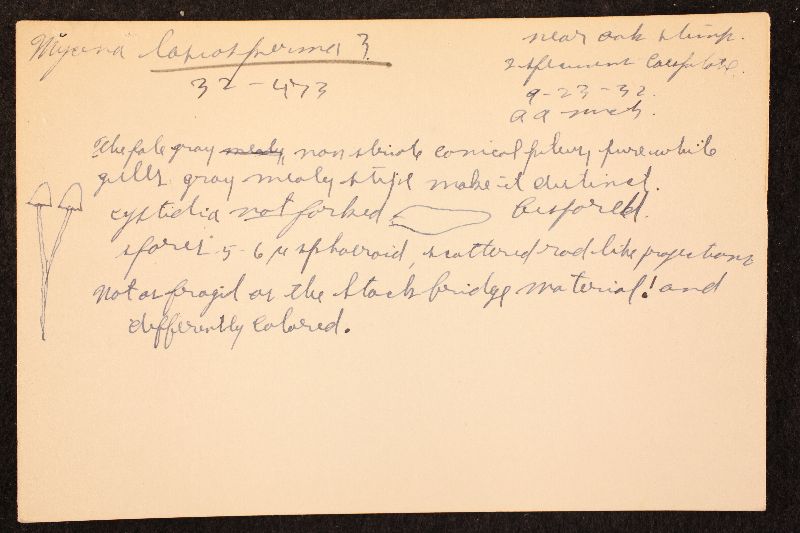 Mycena lasiosperma?
32-473
near oak stump.
2 specimens caespitose.
9-23-32.
a a mich.
The pale gray mealy non striate conical pileus, pure white
gills gray mealy stipe make it distinct.
cystidia not forked 2 spored.
spores 5-6 µ sphaeroid, scattered rod-like projections
not as fragil as the Stockbridge material! and
differently colored.